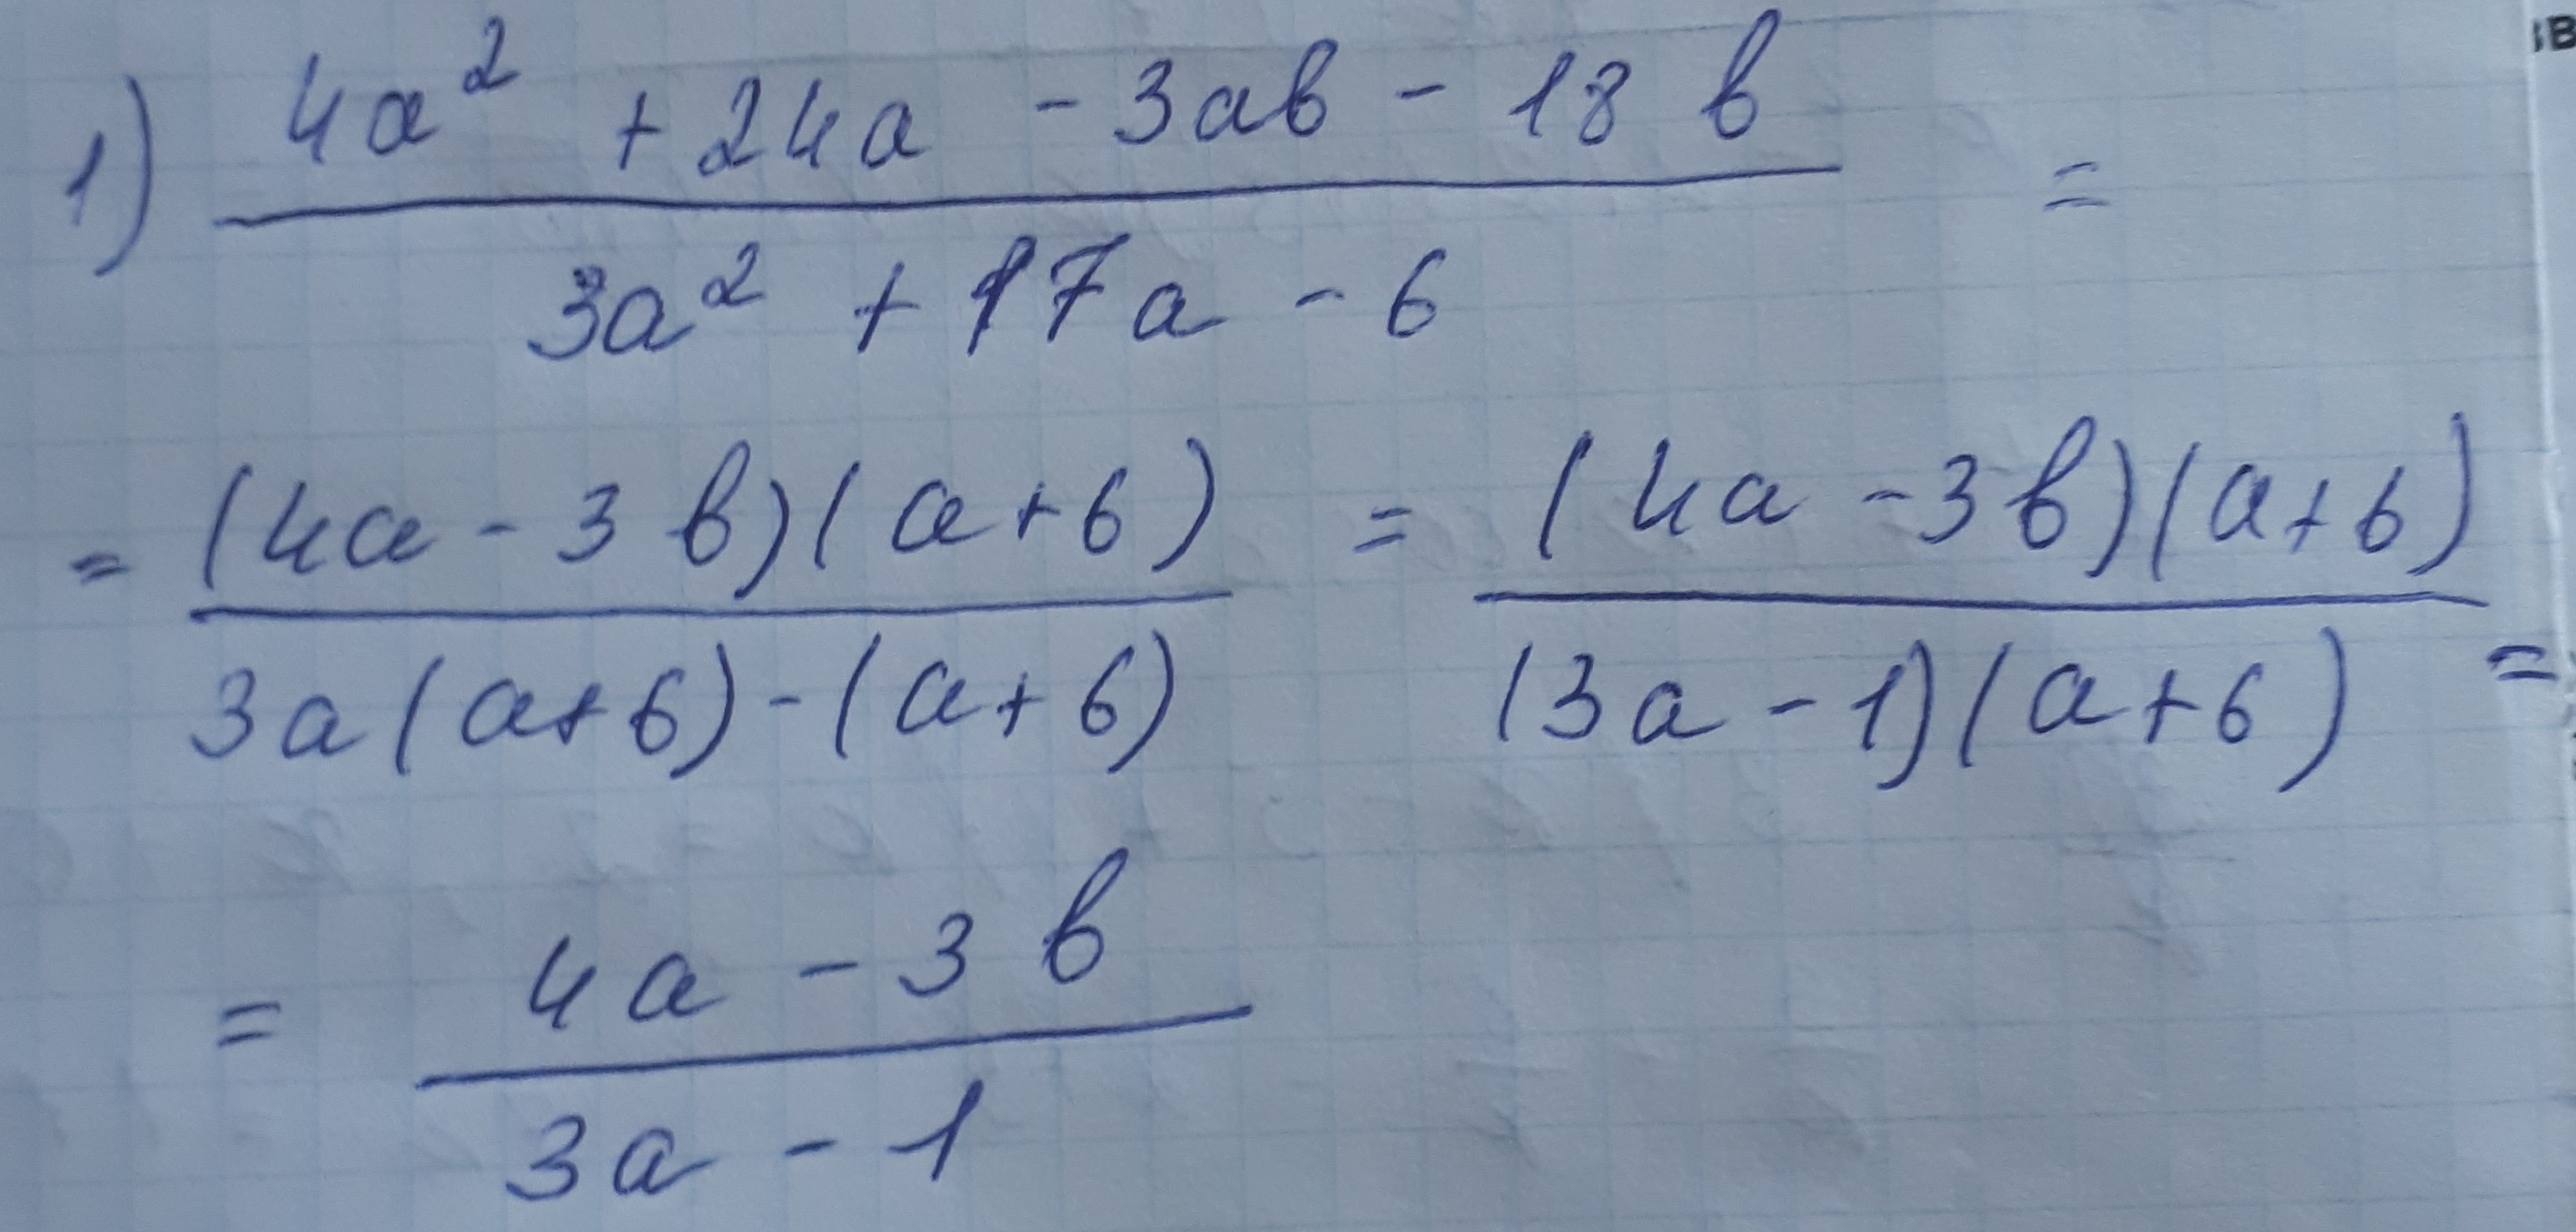 1) (4a² + 24a - 3ab - 18b) / (3a² + 17a - 6) =
= (4a - 3b)(a+6) / (3a(a+6) - (a+6)) = (4a - 3b)(a+6) / ((3a - 1)(a+6)) =
= (4a - 3b) / (3a - 1)